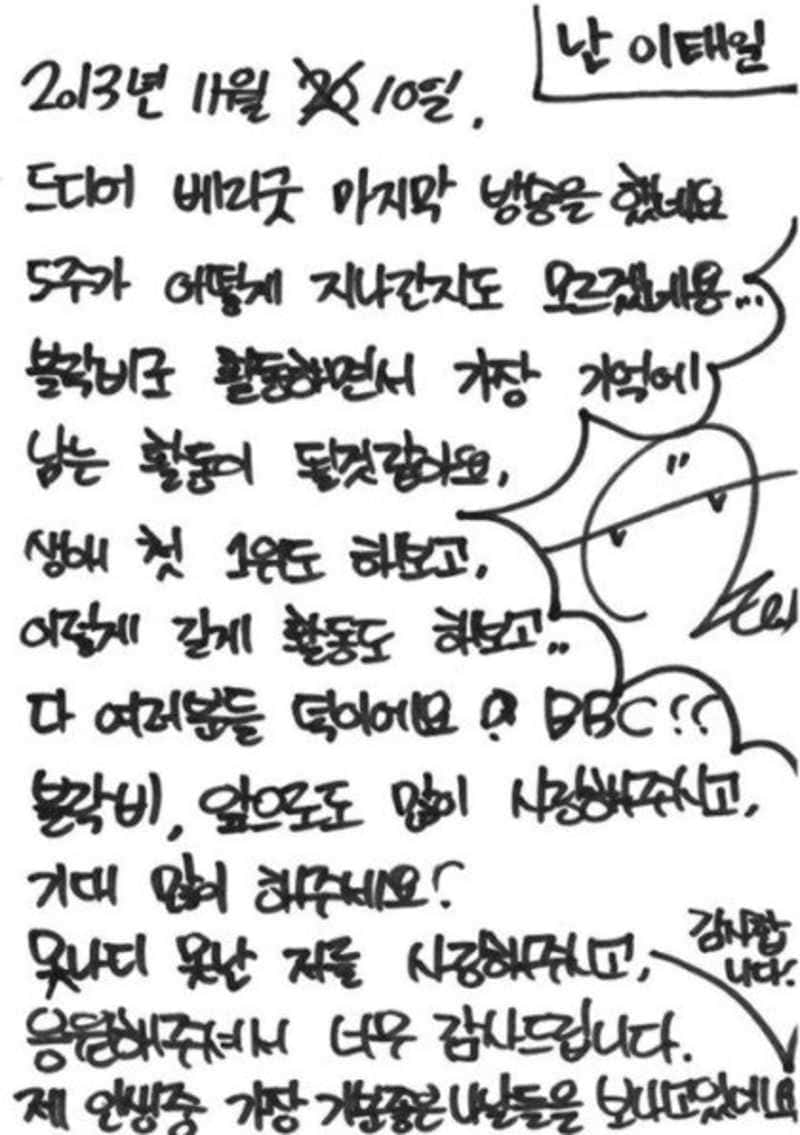 난 이태일
2013년 11월 10일.
드디어 베리굿 마지막 방송을 했네요
5주가 어떻게 지나간지도 모르겠네용...
블락비로 활동하면서 가장 기억에
남는 활동이 될것같아요,
생애 첫 1위도 해보고,
이렇게 길게 활동도 해보고..
다 여러분들 덕이에요 BBC
블락비, 앞으로도 많이 사랑해주시고,
기대 많이 해주세요?
못나디 못난 저를 사랑해주시고,
감사합
니다!
응원해주셔서 너무 감사드립니다.
제 인생중 가장 기분좋은 나날들을 보내고있어요